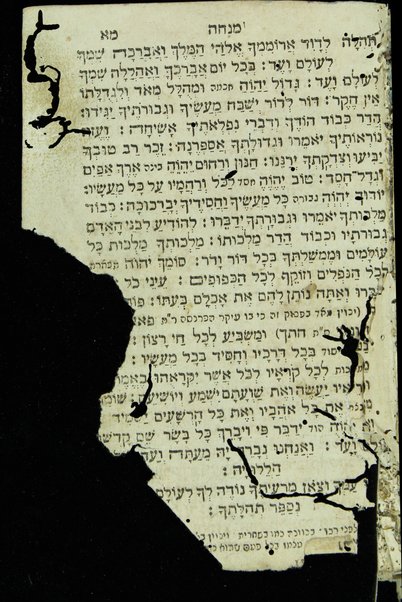 מנחה
מא
תהלה לדוד ארוממך אלוהי המלך ואברכה שמך
לעולם ועד : בכל יום אברכך ואהללה שמך
לעולם ועד : גדול יהוה חכמה ומהלל מאד ולגדלתו
אין חקר : דור לדור ישבח מעשיך וגבורתיך יגידו :
הדר כבוד הודך ודברי נפלאתיך אשיחה : ועזוז
נוראותיך יאמרו וגדולתך אספרנה : זכר רב טובך
יביעו וצדקתך ירננו : חנון ורחום יהוה בינה ארך אפים
וגדל חסד : טוב יהוה חסד לכל ורחמיו על כל מעשיו :
יודוך יהוה גבורה כל מעשיך וחסידיך יברכוכה : כבוד
מלכותך יאמרו וגבורתך ידברו : להודיע לבני האדם
גבורתיו וכבוד הדר מלכותו : מלכותך מלכות כל
עולמים וממשלתך בכל דור ודר : סומך יהוה תפארת
לכל הנפלים וזוקף לכל הכפופים : עיני כל
ואתה נותן להם את אכלם בעתו :
(יכוין מאד בפסוק זה כי בו עיקר הפרנסה ר"ת
ס"ת חתך) ומשביע לכל חי רצון :
בכל דרכיו וחסיד בכל מעשיו :
לכל קראיו לכל אשר יקראהו
יעשה ואת שועתם ישמע ויושיעם :
את כל אהביו ואת כל הרשעים ישמיד
יהוה ידבר פי ויברך כל בשר שם קדשו
ועד : ואנחנו נברך יה מעתה ועד
הללויה :
עמך וצאן מרעיתך נודה לך לעולם
נספר תהלתך :
בכוונה כמו בשחרית